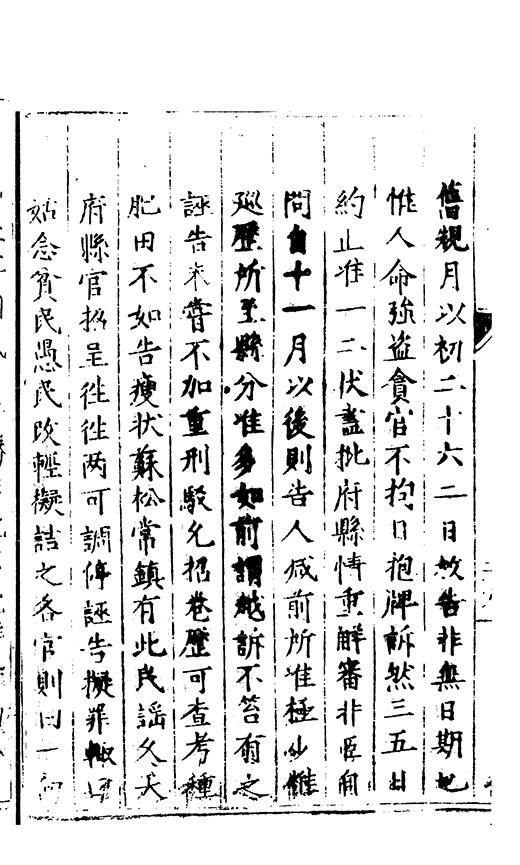 舊規月以初二十六二日放告非無日期也
惟人命強盜貪官不拘日抱牌訴然三五日
約止准一二狀盡批府縣情重解審非臣自
問自十一月以後則告人咸前所准極少惟
廵歷所至縣分准多如前謂越訴不笞有之
誣告未嘗不加重刑駁允招卷歷歷可查考種
肥田不如告瘦狀蘇松常鎮有此民謡久矣
府縣官招呈徃徃兩可調停誣告擬罪輙
姑念貧民愚民改輕擬詰之各官則曰一